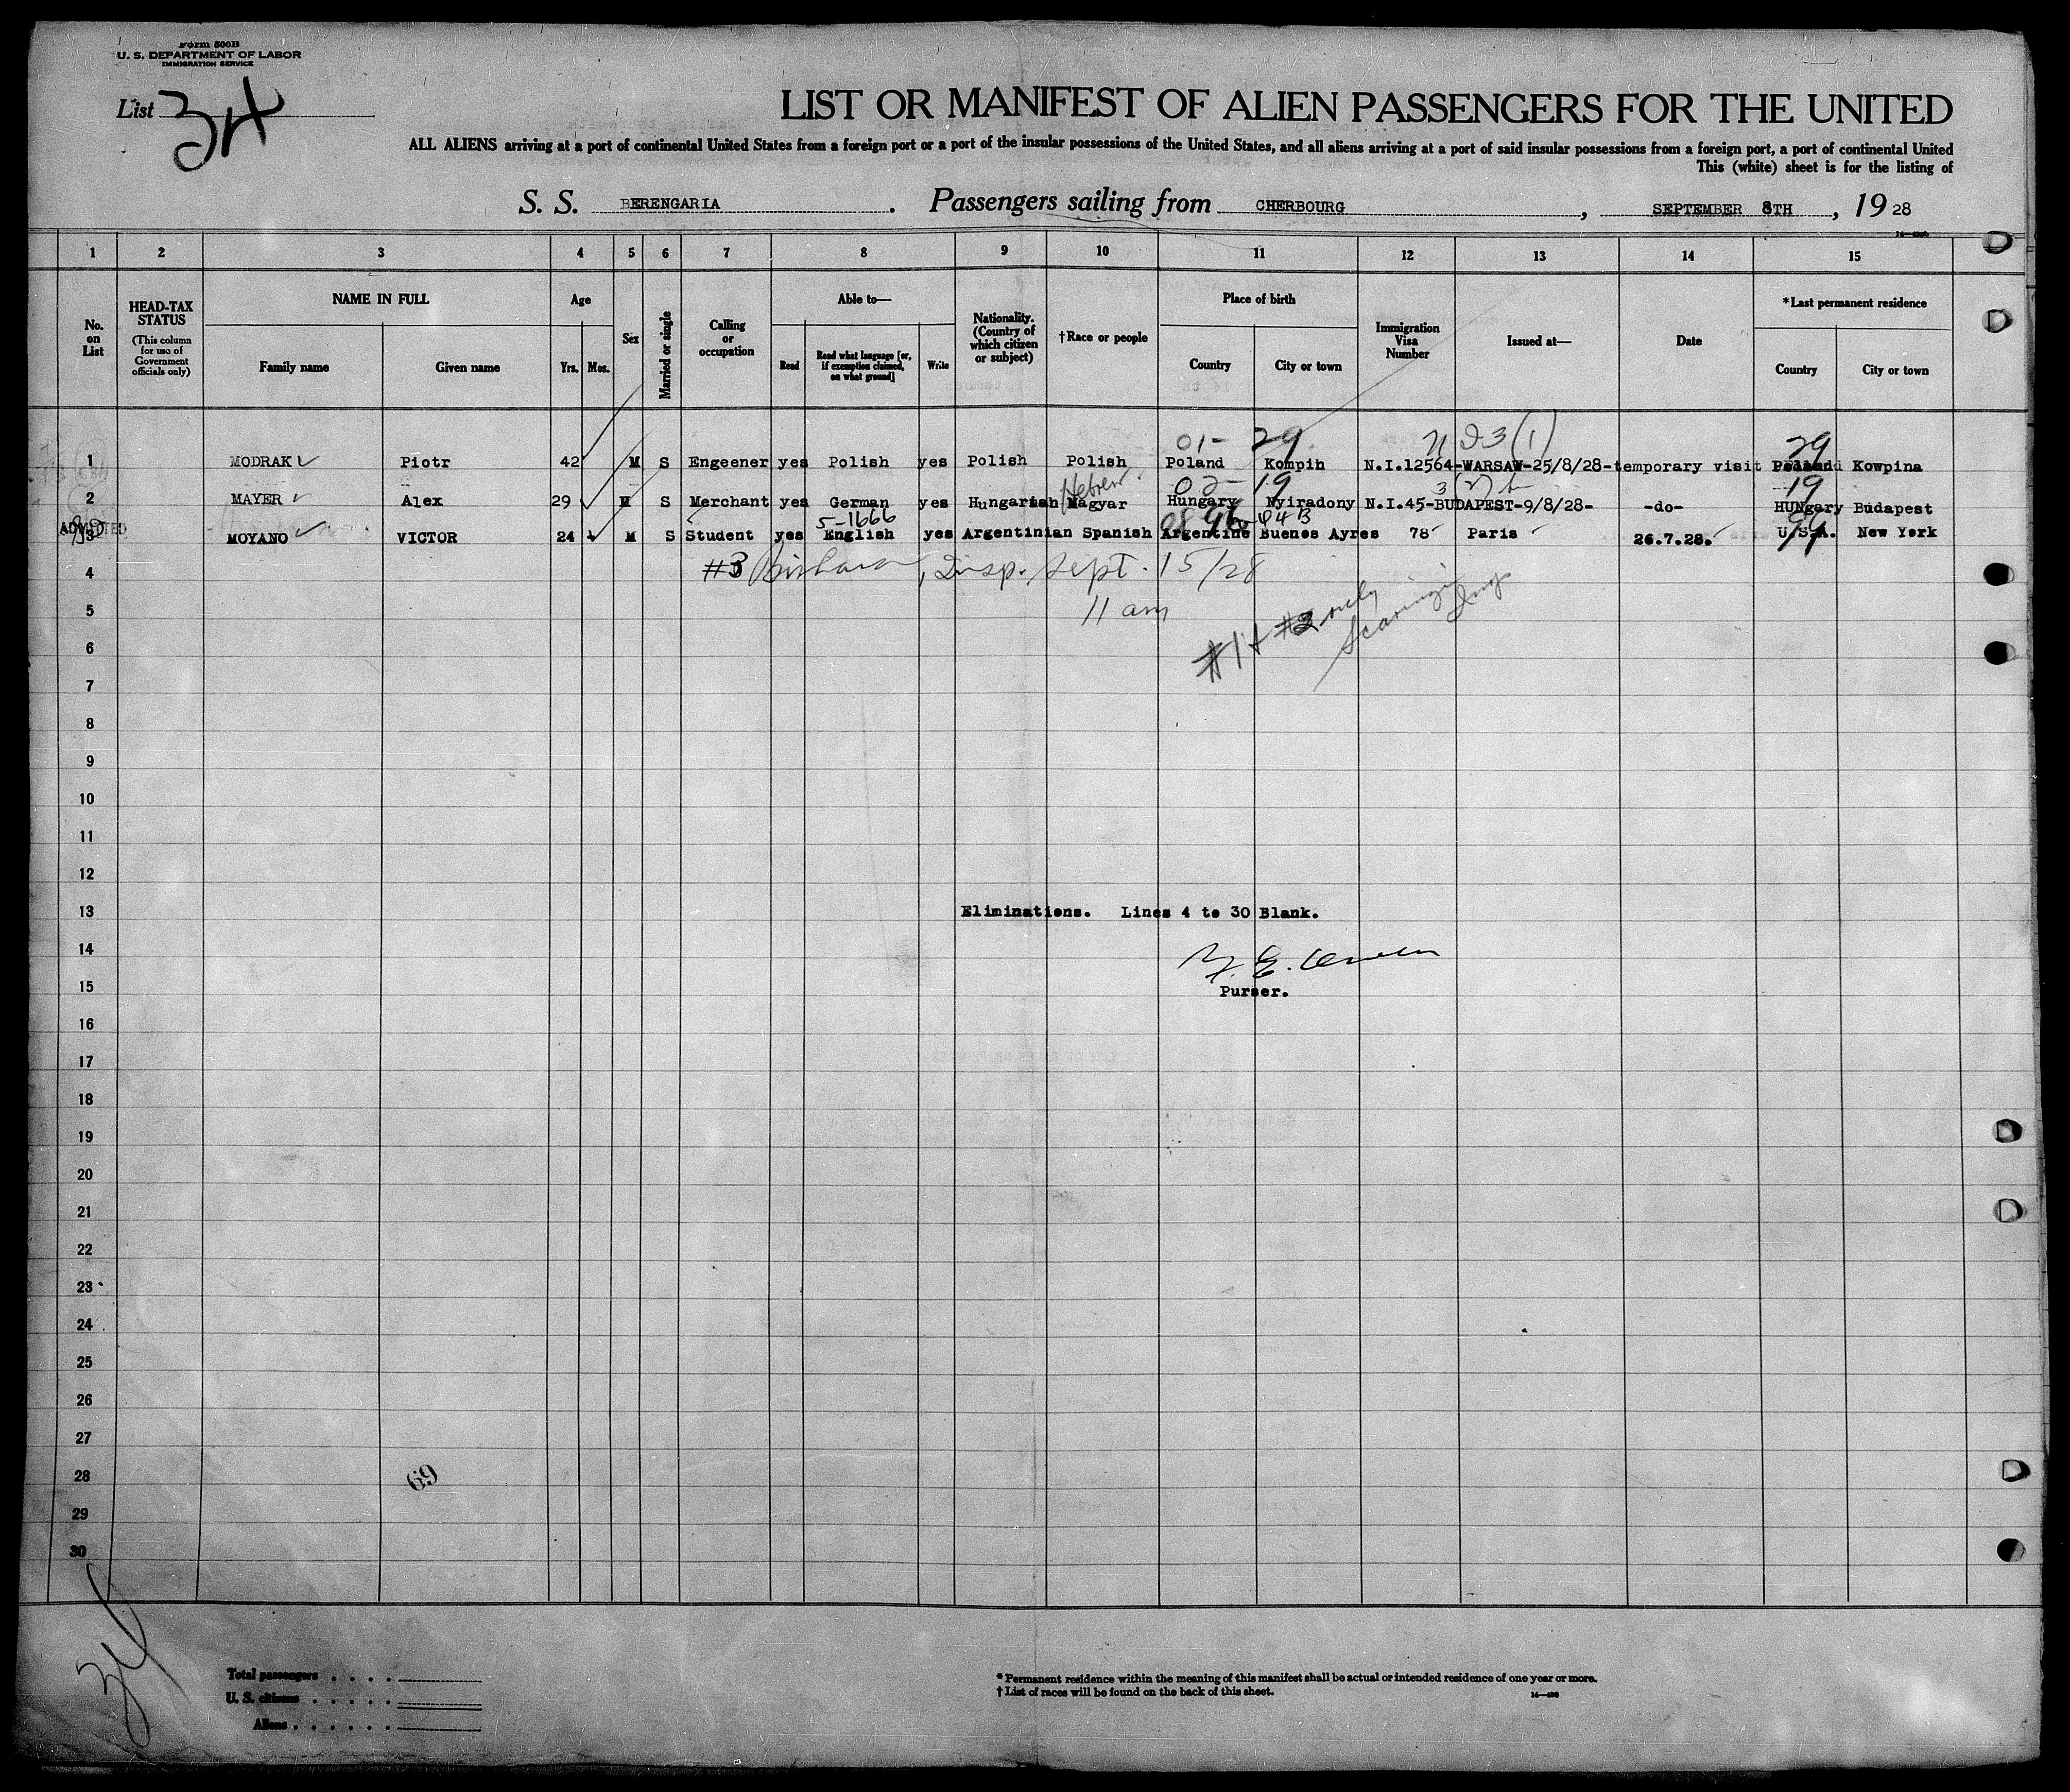 Form 500B
U. S. DEPARTMENT OF LABOR
IMMIGRATION SERVICE
List 34
LIST OR MANIFEST OF ALIEN PASSENGERS FOR THE UNITED
ALL ALIENS arriving at a port of continental United States from a foreign port or a port of the insular possessions of the United States, and all aliens arriving at a port of said insular possessions from a foreign port, a port of continental United
This (white) sheet is for the listing of
S. S. BERENGARIA . Passengers sailing from CHERBOURG , SEPTEMBER 8TH , 19 28
1 2 3 4 5 6 7 8 9 10 11 12 13 14 15
No. on List
HEAD-TAX STATUS (This column for use of Government officials only)
NAME IN FULL Family name Given name
Age Yrs. Mos.
Sex
Married or single
Calling or occupation
Able to— Read Read what language [or, if exemption claimed, on what ground] Write
Nationality. (Country of which citizen or subject)
†Race or people
Place of birth Country City or town
Immigration Visa Number
Issued at—
Date
*Last permanent residence Country City or town
01- 29 29
1 MODRAK Piotr 42 M S Engeener yes Polish yes Polish Polish Poland Kompin N.I.12564-WARSAW-25/8/28-temporary visit Poland Kowpina
Hebrew 02- 19 19
2 MAYER Alex 29 M S Merchant yes German yes Hungarian Magyar Hungary Nyiradony N.I.45-BUDAPEST-9/8/28- -do- HUngary Budapest
5-1666
ADMITTED
3 MOYANO VICTOR 24 M S Student yes English yes Argentinian Spanish Argentine Buenos Ayres 78 Paris 26.7.28. U.S.A. New York
4 #3 , Insp. Sept. 15/28
5 11 am
#1 + #2 only
6
7
8
9
10
11
12
13 Eliminations. Lines 4 to 30 Blank.
14
15 Purser.
16
17
18
19
20
21
22
23
24
25
26
27
28
69
29
30
34
Total passengers
U. S. citizens
Aliens
* Permanent residence within the meaning of this manifest shall be actual or intended residence of one year or more.
† List of races will be found on the back of this sheet.